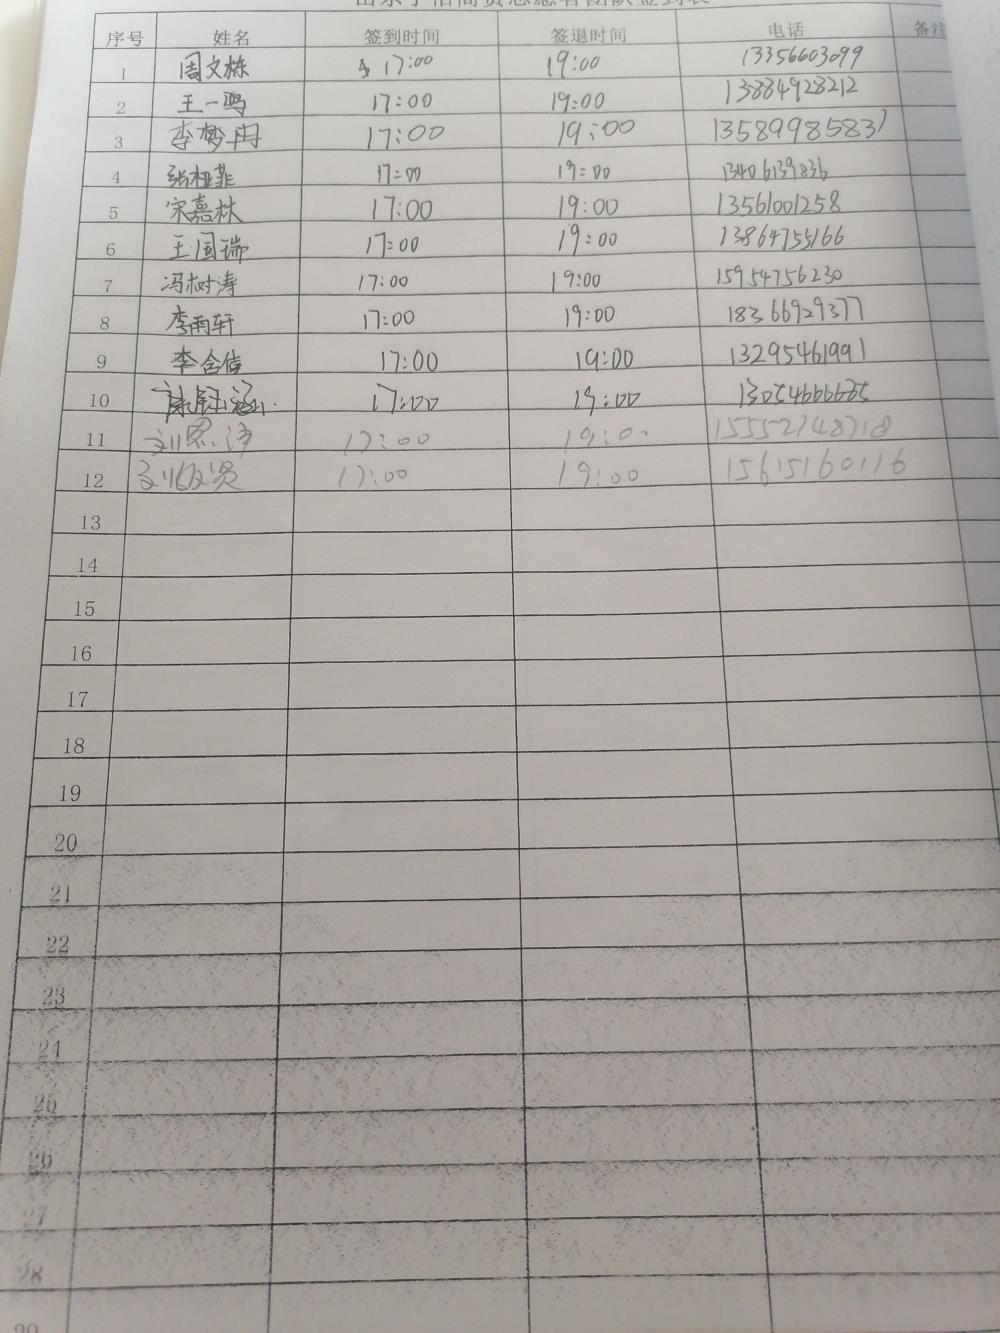 序号 姓名 签到时间 签退时间 电话 备注
1 周文栋 17:00 19:00 13356603099
2 王一鸣 17:00 19:00 13884928212
3 李梦冉 17:00 19:00 13589985831
4 17:00 19:00 13406139836
5 宋嘉林 17:00 19:00 13561001258
6 王国瑞 17:00 19:00 13864755166
7 冯树涛 17:00 19:00 15954756230
8 李雨轩 17:00 19:00 18366929377
9 李合信 17:00 19:00 13295461991
10 17:00 19:00
11 17:00 19:00 15552748718
12 17:00 19:00 15615160116
13
14
15
16
17
18
19
20
21
22
23
24
25
26
27
28
29